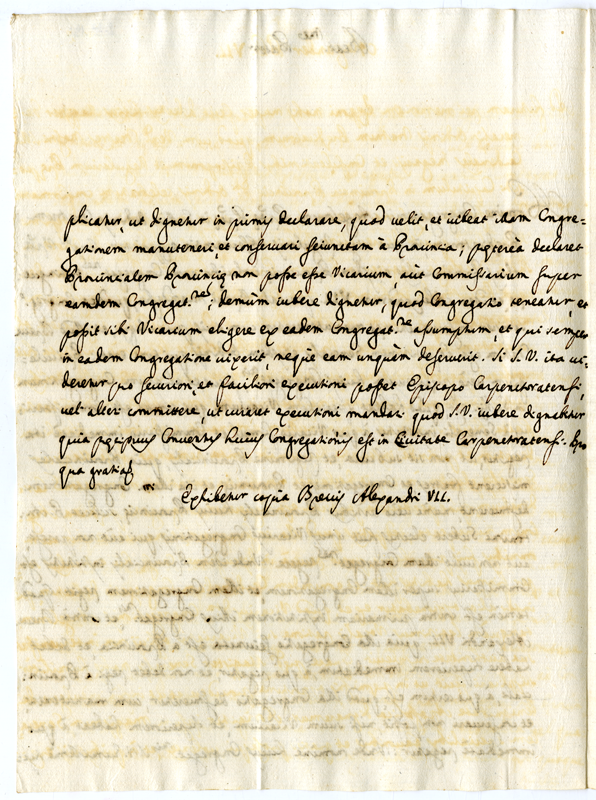 plicatur, ut dignetur in primis declarare, quod velit, et iubeat illam Congre-
gationem manuteneri, et conservari seiunctam à Provincia; pręterea declaret
Provincialem Provincię non posse esse Vicarium, aut Commissarium super
eamdem Congregat.nem; demum iubere dignetur, quod Congregatio teneatur, et
possit sibi Vicarium eligere ex eadem Congregat.ne assumptum, et qui semper
in eadem Congregatione vixerit, neque eam unquam deseruerit. Si S. V. ita vi-
deretur pro securiori, et faciliori executioni posset Episcopo Carpenctoratensi,
vel alteri committere, ut curaret executioni mandari quod S. V. iubere dignabitur
quia pręcipuus Conventus huius Congregationis est in Civitate Carpenctoratensi. Pro
qua gratia
Exhibetur copia Brevis Alexandri VII.